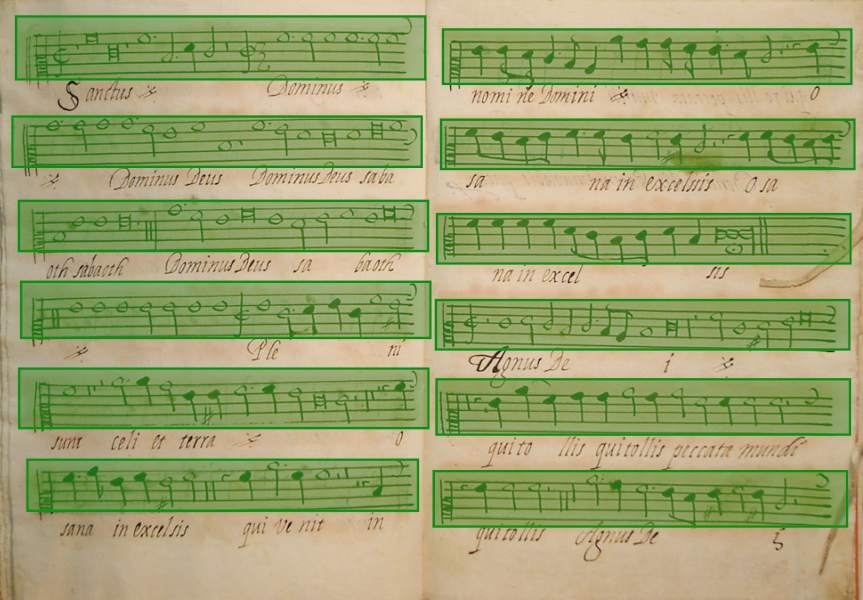 Sanctus Dominus
Dominus Deus Dominus Deus saba
oth sabaoth Dominus Deus sa baoth
Ple ni
sunt celi et terra O
sana in excelsis qui ve nit in
nomi ne Domini O
sa na in excelsis O sa
na in excel sis
Agnus De i
qui to llis qui tollis peccata mundi
qui tollis Agnus De i